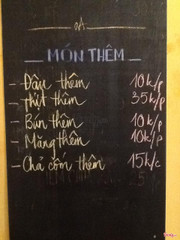 MÓN THÊM
- Đậu thêm 10k/p
- thịt thêm 35k/p
- Bún thêm 10k/p
- Măng thêm 10k/p
- Chả cốm thêm 15k/c